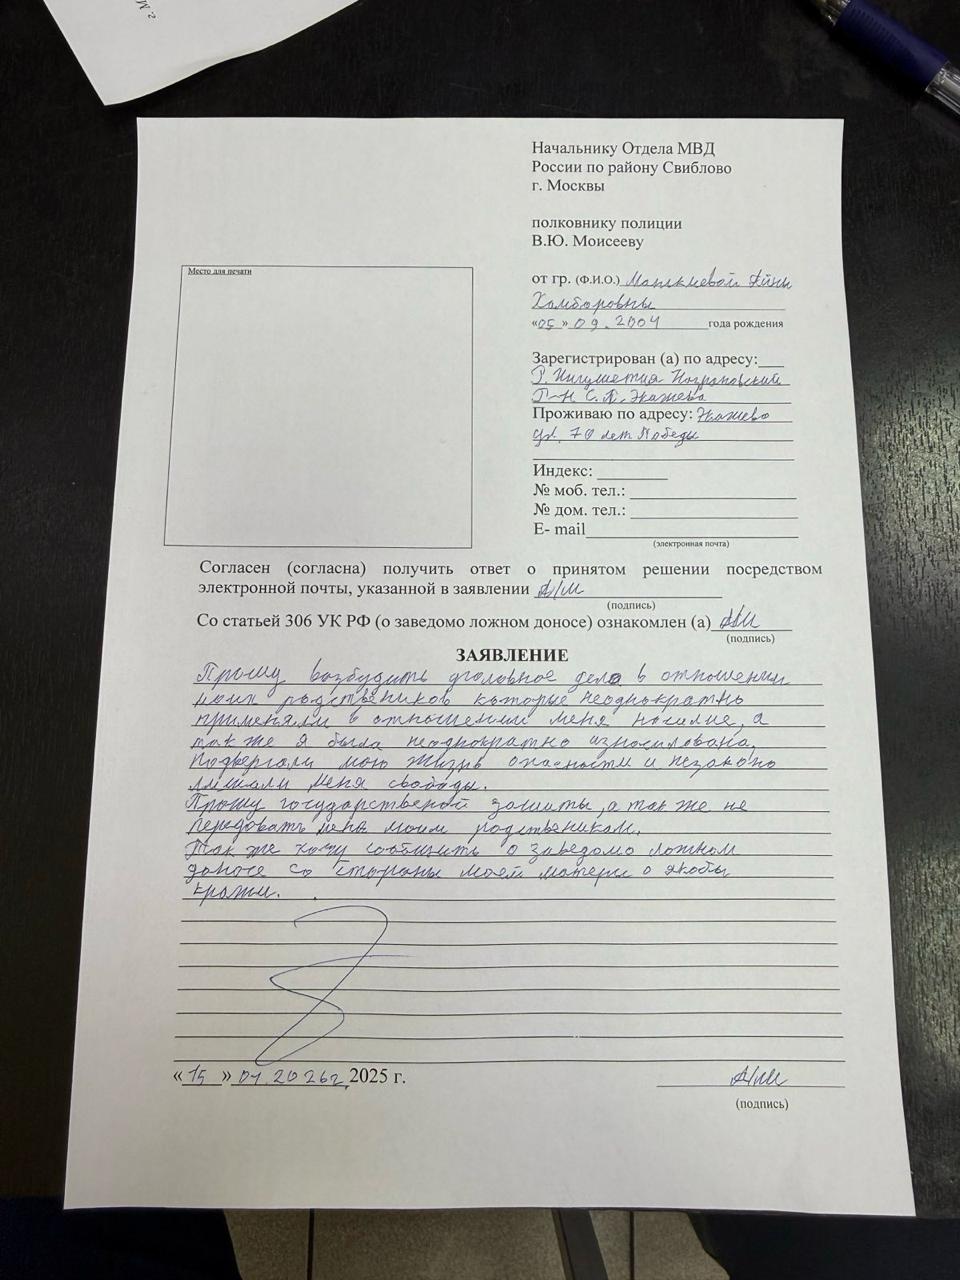 г. М
Начальнику Отдела МВД
России по району Свиблово
г. Москвы
полковнику полиции
В.Ю. Моисееву
Место для печати
от гр. (Ф.И.О.) Айны
«05» 09.2004 года рождения
Зарегистрирован (а) по адресу:
Р. Ингушетия
Р-н С.П. Экажево
Проживаю по адресу: Экажево
ул. 70 лет Победы
Индекс:
№ моб. тел.:
№ дом. тел.:
E- mail
(электронная почта)
Согласен (согласна) получить ответ о принятом решении посредством
электронной почты, указанной в заявлении А/М
(подпись)
Со статьей 306 УК РФ (о заведомо ложном доносе) ознакомлен (а) А/М
(подпись)
ЗАЯВЛЕНИЕ
Прошу возбудить уголовное дело в отношении
моих родственников которые неоднократно
применяли в отношении меня насилие, а
так же я была неоднократно износилована.
Подвергали мою жизнь опасности и незаконо
лишали меня свободы.
Прошу государственой защиты, а так же не
передовать меня моим родственикам.
Так же хочу сообщить о заведомо ложном
доносе со стороны моей матери о якобы
кражи.
«15» 01.2026г. 2025 г.
А/М
(подпись)